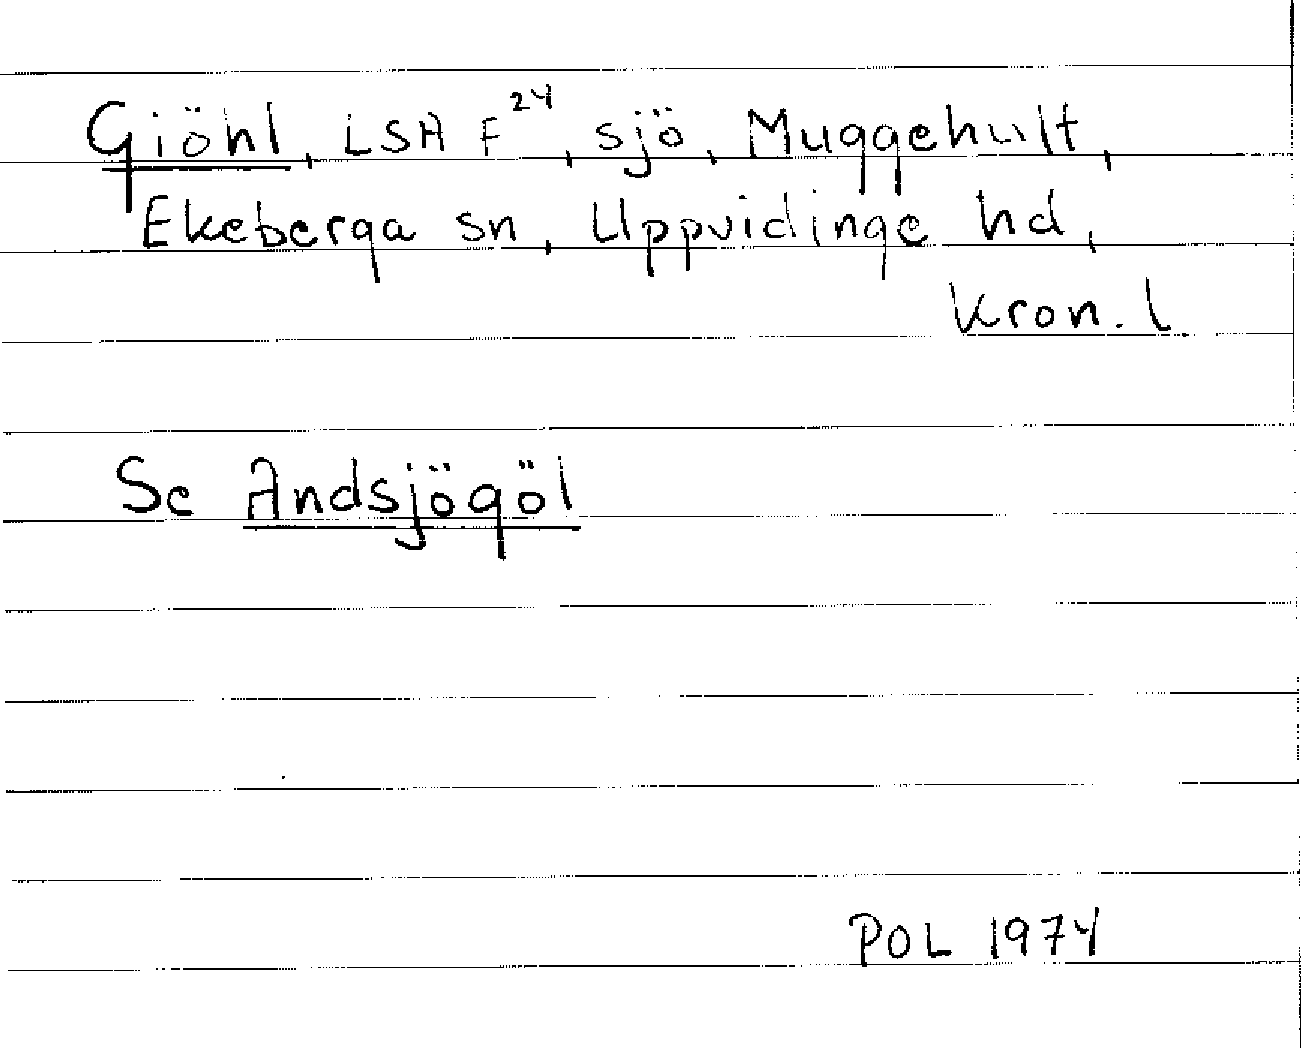 Giöhl, LSA F²⁴, sjö, Muggehult,
Ekeberga sn, Uppvidinge hd,
Kron. l
Se Andsjögöl
POL 1974